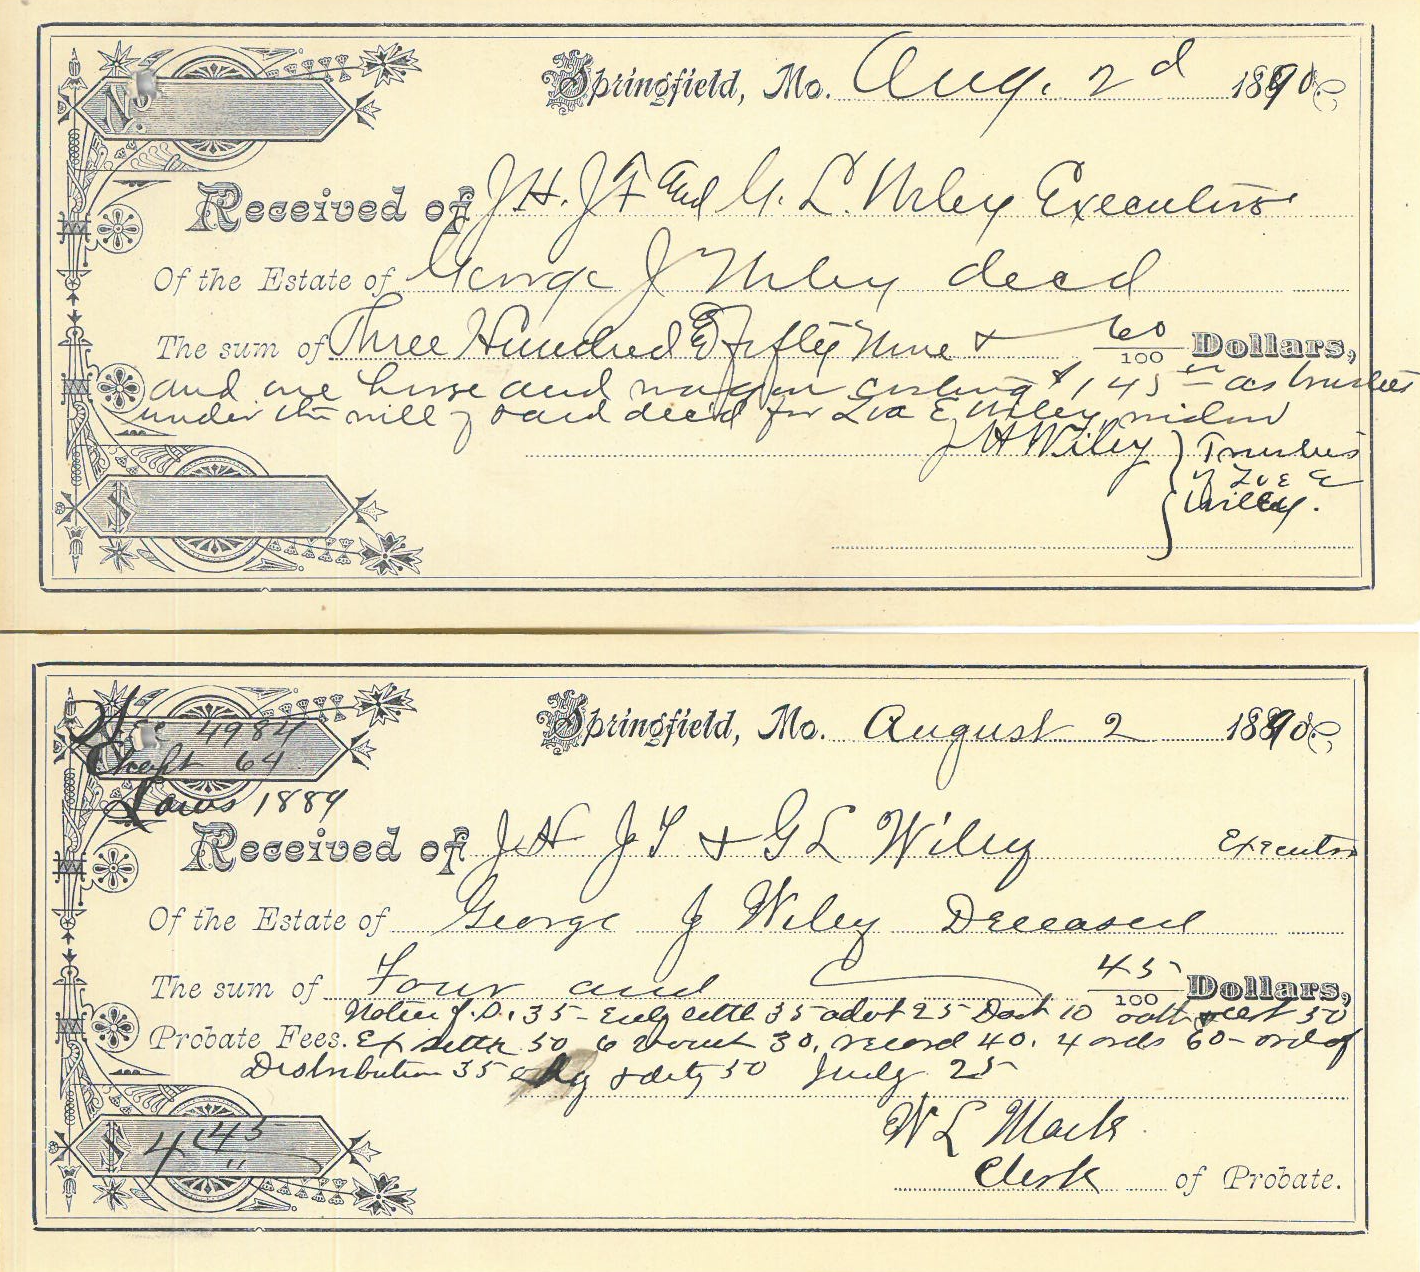 No.
Springfield, Mo. Aug. 2d 1890
Received of J H. J F and G. L. Wiley Executors
Of the Estate of George J Wiley decd
The sum of Three Hundred & Fifty Nine & 60/100 Dollars,
and one horse and wagon costing $145 as trustees
under the will of said decd for Zoe E Wiley, widow
J H Wiley } Trustees
of Zoe E
Wiley.
$
Sec 4984
Chapt 64
Laws 1889
Springfield, Mo. August 2 1890
Received of J H J F & G L Wiley Executors
Of the Estate of George J Wiley Deceased
The sum of Four and 45/100 Dollars,
35 settl 35 25 10 oath 50
Probate Fees. Ex settr 50 6 30. record 40. 4 ords 60 - ord of
Distribution 35 50 Judg 25
W L Mack
Clerk of Probate.
$ 4.45